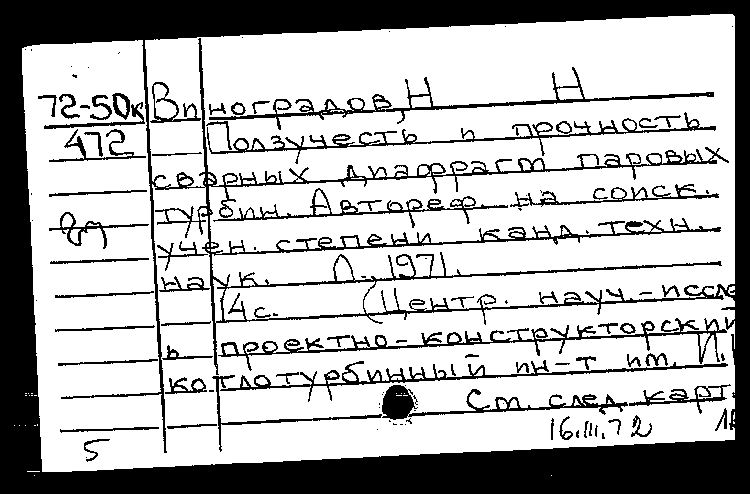 72-50к Виноградов, Н Н
472 Ползучесть и прочность
сварных диафрагм паровых
турбин. Автореф. на соиск.
учен. степени канд. техн.
наук. Л., 1971.
14 с. (Центр. науч.-иссле
и проектно-конструкторский
котлотурбинный ин-т им. И.
См. след. карт.
16.III.72
5